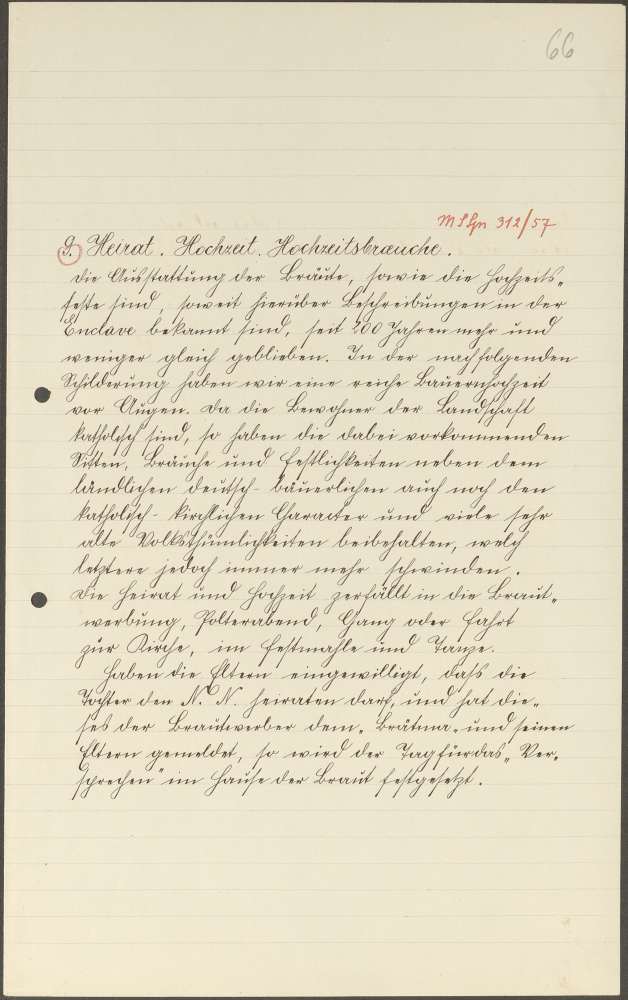 66
MSgn 312/57
9. Heirat. Hochzeit. Hochzeitsbraeuche.
Die Ausstattung der Bräute, sowie die Hochzeits-
feste sind, soweit hierüber Beschreibungen in der
Enclave bekannt sind, seit 200 Jahren mehr und
weniger gleich geblieben. In der nachfolgenden
Schilderung haben wir eine reiche Bauernhochzeit
vor Augen. Da die Bewohner der Landschaft
katholisch sind, so haben die dabei vorkommenden
Sitten, Bräuche und Festlichkeiten neben dem
ländlichen deutsch-bäuerlichen auch noch den
katholisch-kirchlichen Character und viele sehr
alte Volksthümlichkeiten beibehalten, welch
letztere jedoch immer mehr schwinden.
Die Heirat und Hochzeit zerfällt in die Braut-
werbung, Polterabend, Gang oder Fahrt
zur Kirche, im Festmahle und Tanze.
Haben die Eltern eingewilligt, daß die
Tochter den N. N. heiraten darf, und hat die-
ses der Brautwerber dem "Brätma" und seinen
Eltern gemeldet, so wird der Tag für das "Ver-
sprechen" im Hause der Braut festgesetzt.